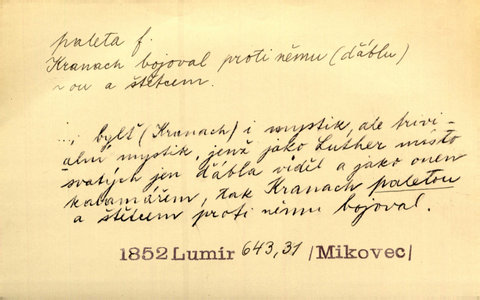 paleta f.
Kranach bojoval proti němu (ďáblu)
~ou a štětcem.
...; bylť (Kranach) i mystik, ale trivi-
alní mystik, jenž jako Luther místo
svatých jen ďábla viděl a jako onen
kalamářem, tak Kranach paletou
a štětcem proti němu bojoval.
1852 Lumír 643,31 /Mikovec/